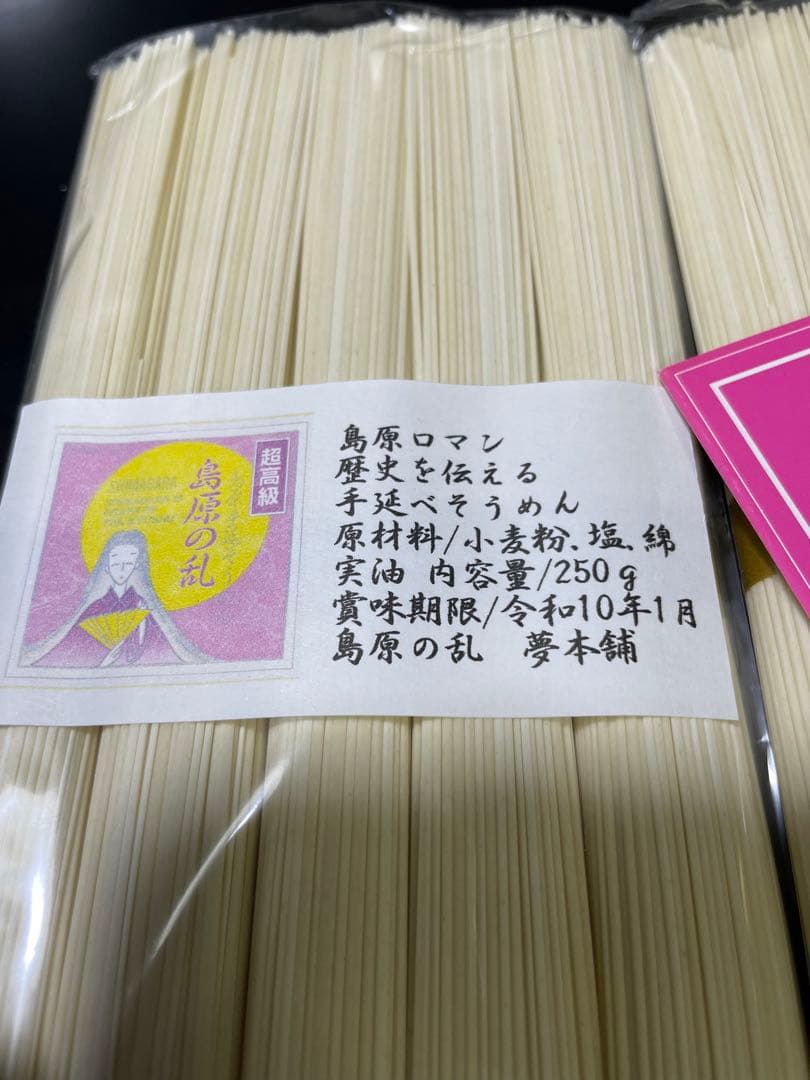 超高級
島原の乱
島原ロマン
歴史を伝える
手延べそうめん
原材料/小麦粉、塩、綿
実油 内容量/250g
賞味期限/令和10年1月
島原の乱 夢本舗